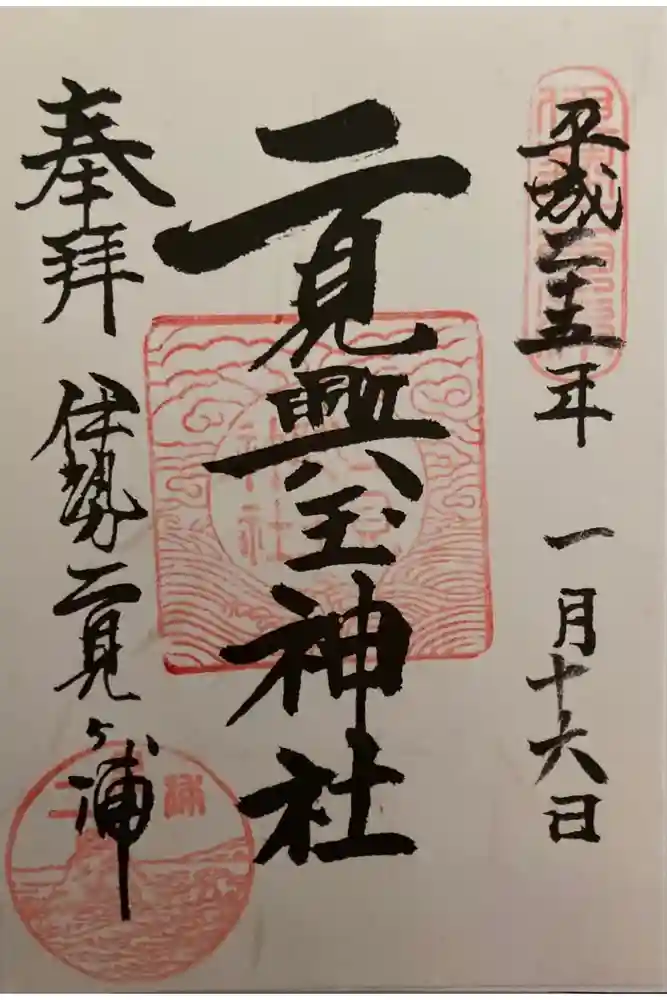 平成二十五年 一月十六日
二見興玉神社
奉拝 伊勢二見ヶ浦